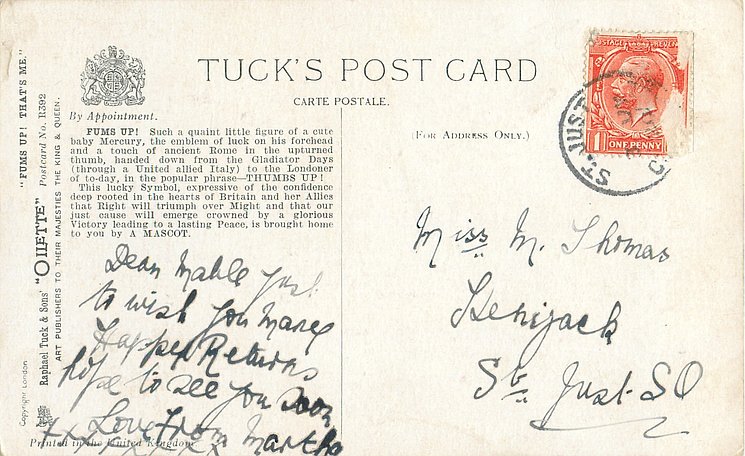 TUCK'S POST CARD
CARTE POSTALE.
(FOR ADDRESS ONLY.)
By Appointment.
FUMS UP! Such a quaint little figure of a cute
baby Mercury, the emblem of luck on his forehead
and a touch of ancient Rome in the upturned
thumb, handed down from the Gladiator Days
(through a United allied Italy) to the Londoner
of to-day, in the popular phrase—THUMBS UP!
This lucky Symbol, expressive of the confidence
deep rooted in the hearts of Britain and her Allies
that Right will triumph over Might and that our
just cause will emerge crowned by a glorious
Victory leading to a lasting Peace, is brought home
to you by A MASCOT.
"FUMS UP! THAT'S ME."
Raphael Tuck & Sons' "OILETTE" Postcard No. R392
ART PUBLISHERS TO THEIR MAJESTIES THE KING & QUEEN.
Copyright London
Printed in the United Kingdom
Dear Mable Just
to wish you Many
Happy Returns
hope to see you soon
Love From Martha
xxxxxxxx
POSTAGE REVENUE
1 ONE PENNY
ST. JUST
Miss M. Thomas
Kenijack
St Just. SO